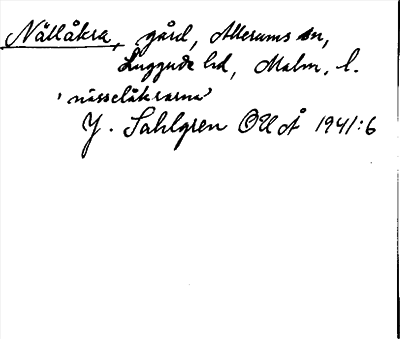 Nällåkra, gård, Allerums sn,
Luggude hd, Malm. l.
'nässelåkrarna'
J. Sahlgren OUÅ 1941:6